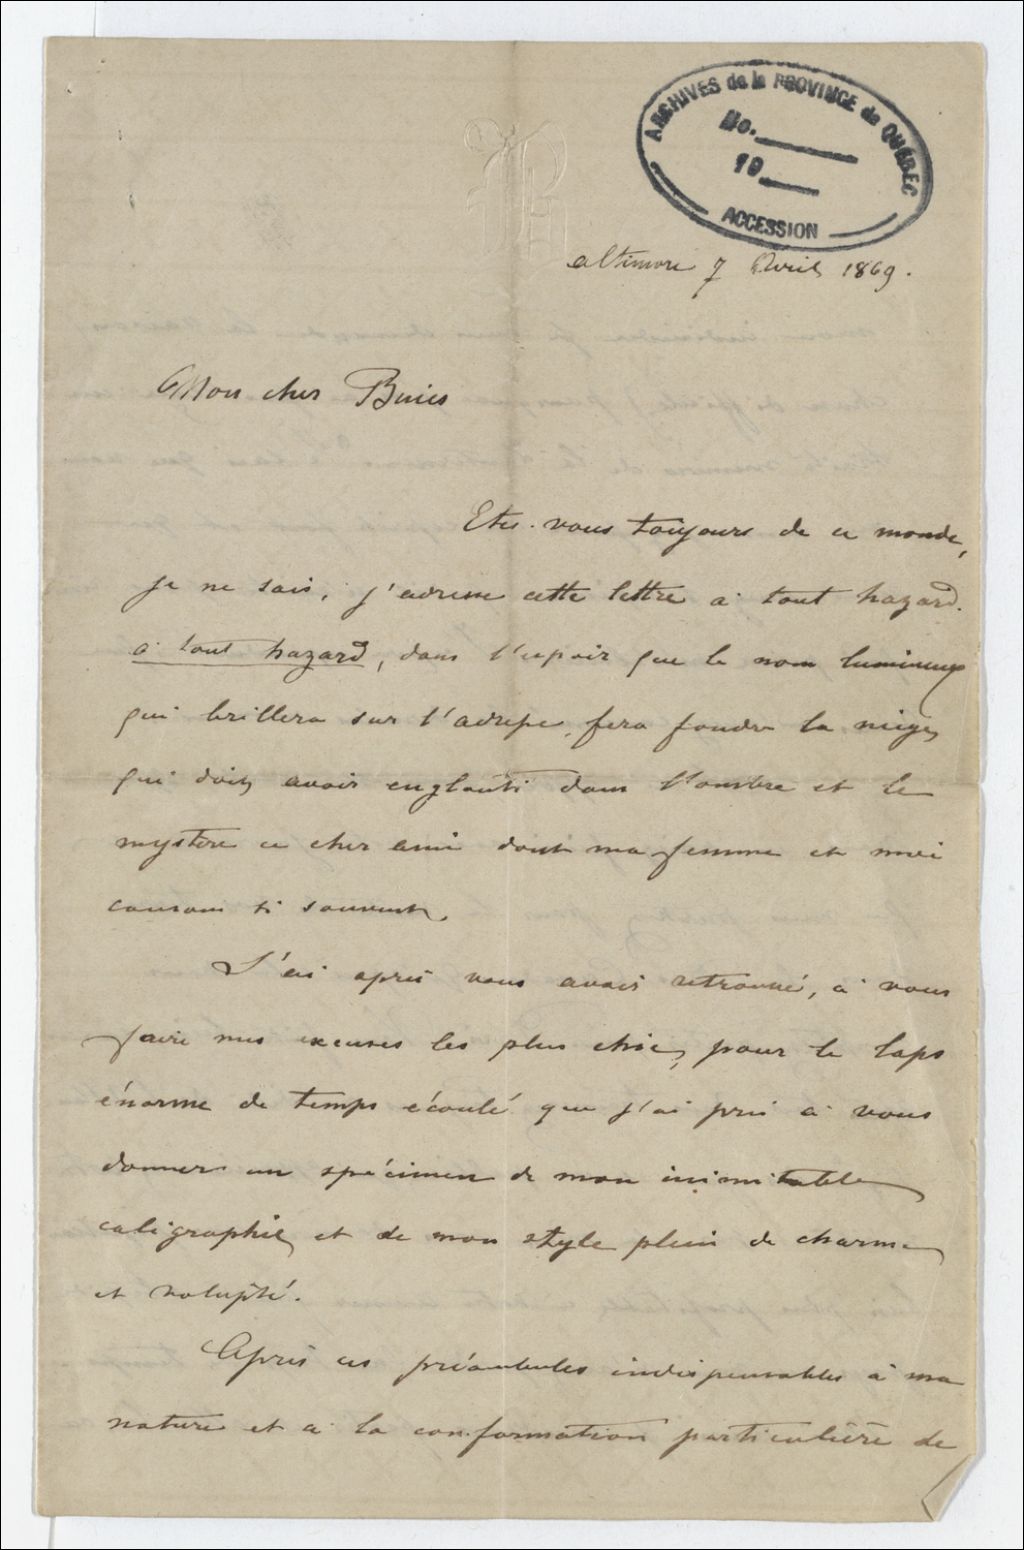 ARCHIVES de la PROVINCE de QUÉBEC
No.
19
ACCESSION
altimore 7 Avril 1869.
Mon cher Buies
Etes-vous toujours de ce monde,
je ne sais, j'adresse cette lettre a tout hazard.
a tout hazard, dans l'espoir que le nom lumineux
qui brillera sur l'adresse, fera fondre la neige
qui doit avoir englouti dans l'ombre et le
mystère ce cher ami dont ma femme et moi
causons si souvent.
J'ai après vous avoir retrouvé, à vous
faire mes excuses les plus chic, pour le laps
énorme de temps écoulé que j'ai pris à vous
donner un spécimen de mon inimitable
caligraphie et de mon style plein de charme
et volupté.
Après ces préambules indispensables à ma
nature et a la conformation particulière de